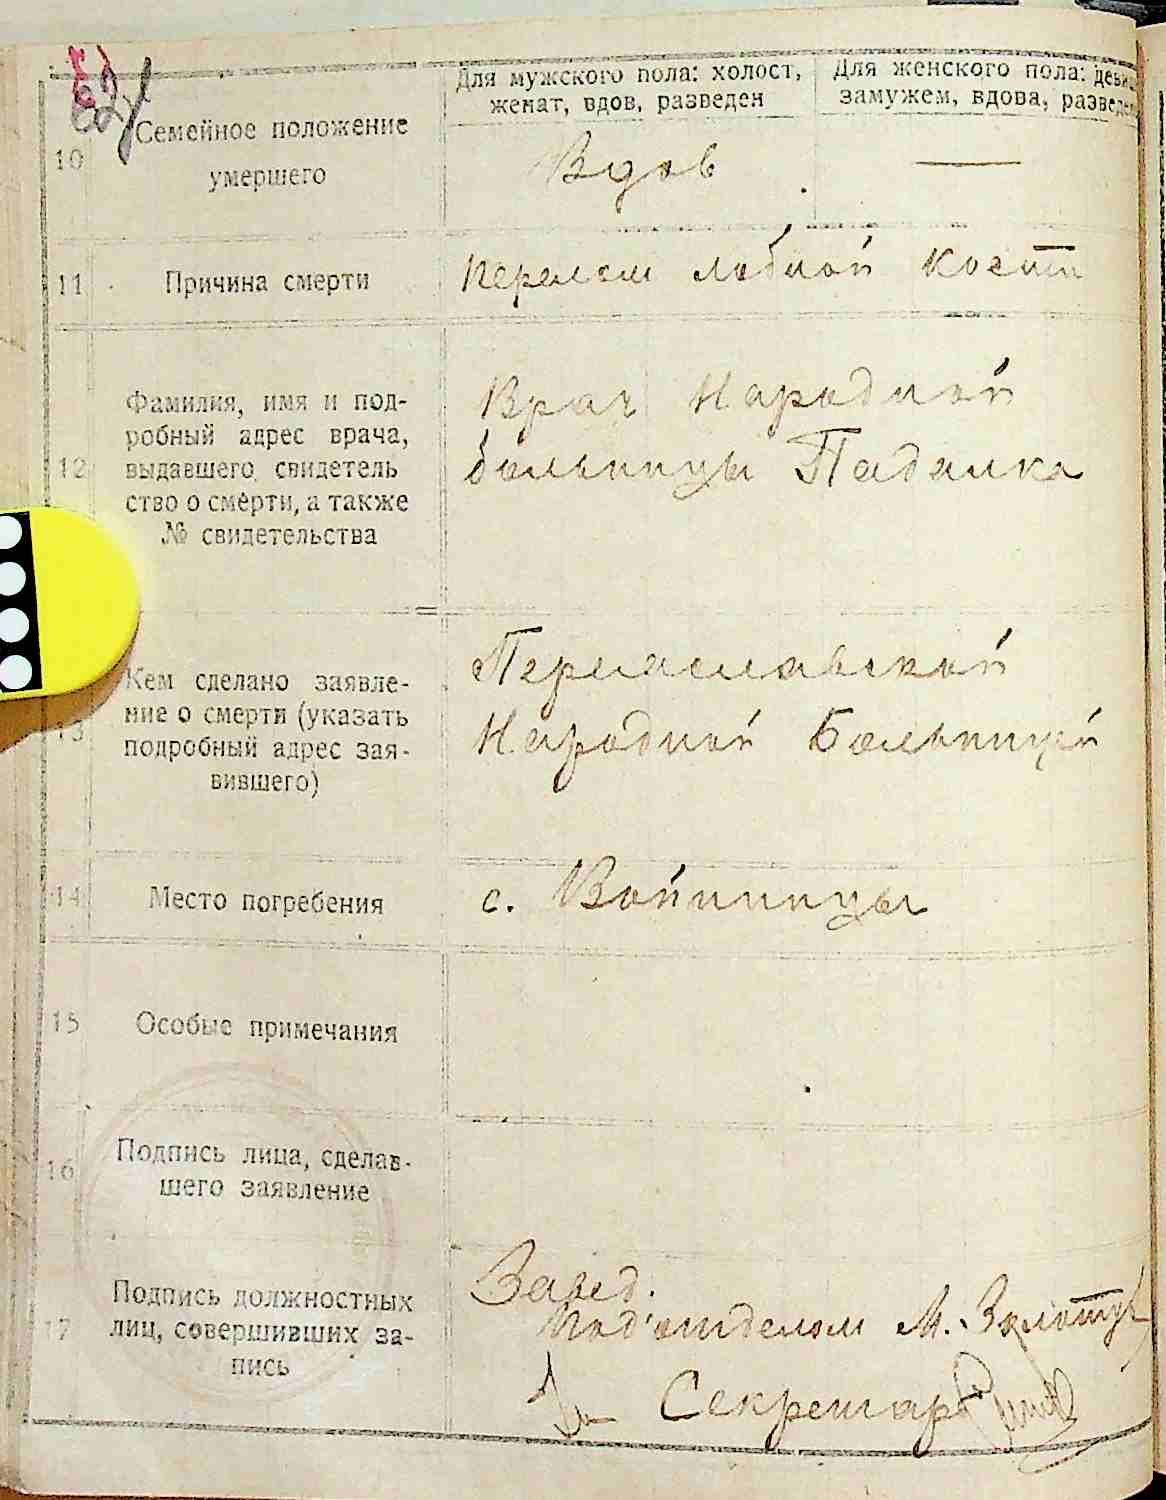 10
Семейное положение
умершего
Для мужского пола: холост,
женат, вдов, разведен
Для женского пола:
замужем, вдова,
Вдов
11
Причина смерти
Перелом лобной кости
12
Фамилия, имя и под-
робный адрес врача,
выдавшего свидетель
ство о смерти, а также
№ свидетельства
Врач Народной
больницы Падалка
13
Кем сделано заявле-
ние о смерти (указать
подробный адрес зая-
вившего)
Переяславской
Народной Больницей
14
Место погребения
с. Войниицы
15
Особые примечания
16
Подпись лица, сделав-
шего заявление
17
Подпись должностных
лиц, совершивших за-
пись
Завед.
Под'отделом М.
Секретарь